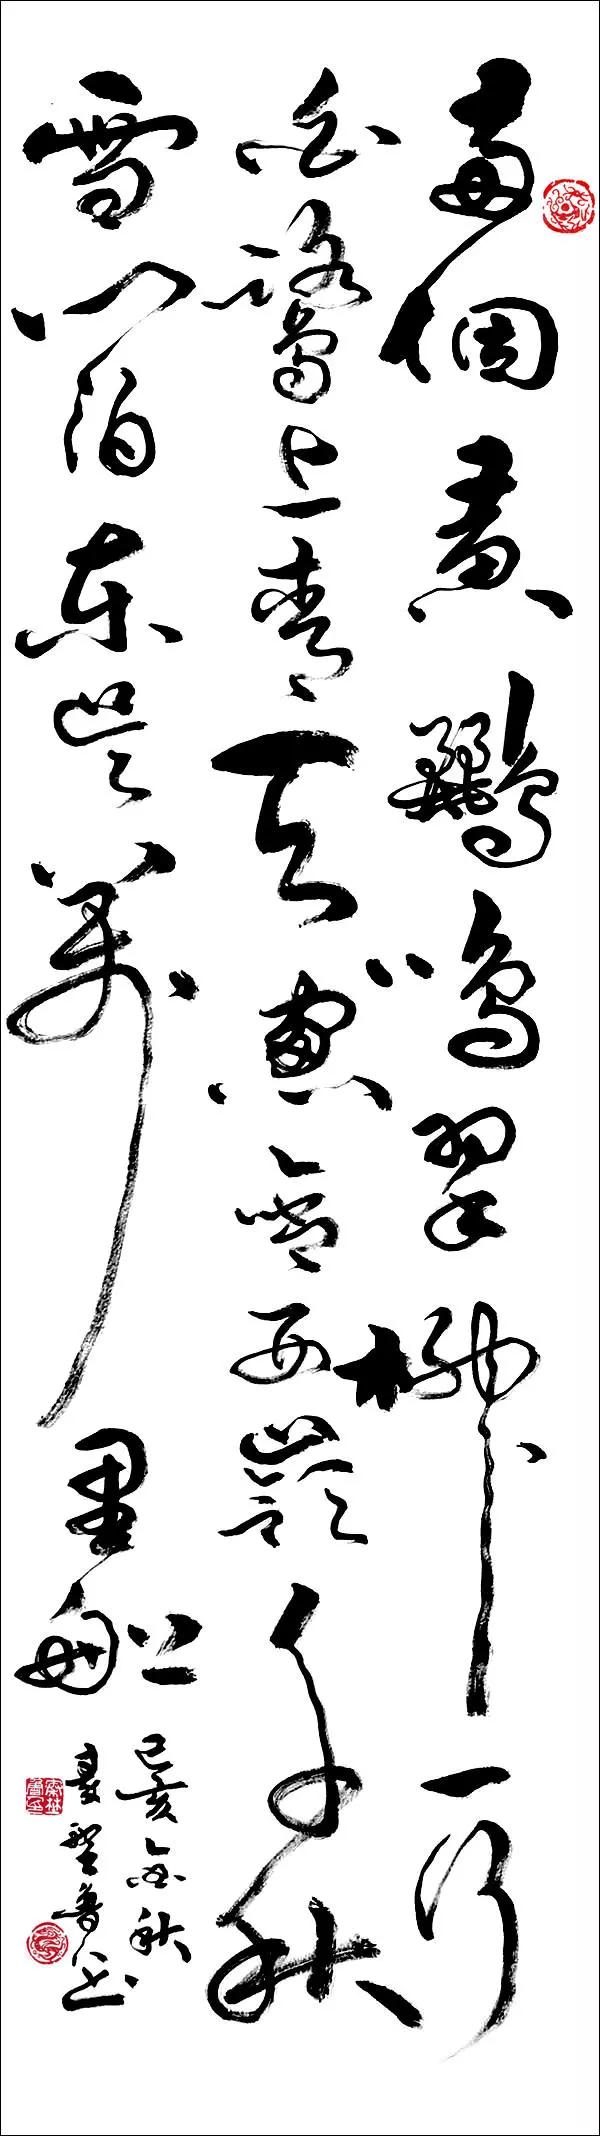 兩個黃鸝鳴翠柳一行
白鷺上青天窗含西嶺千秋
雪門泊東吳萬里船
己亥金秋